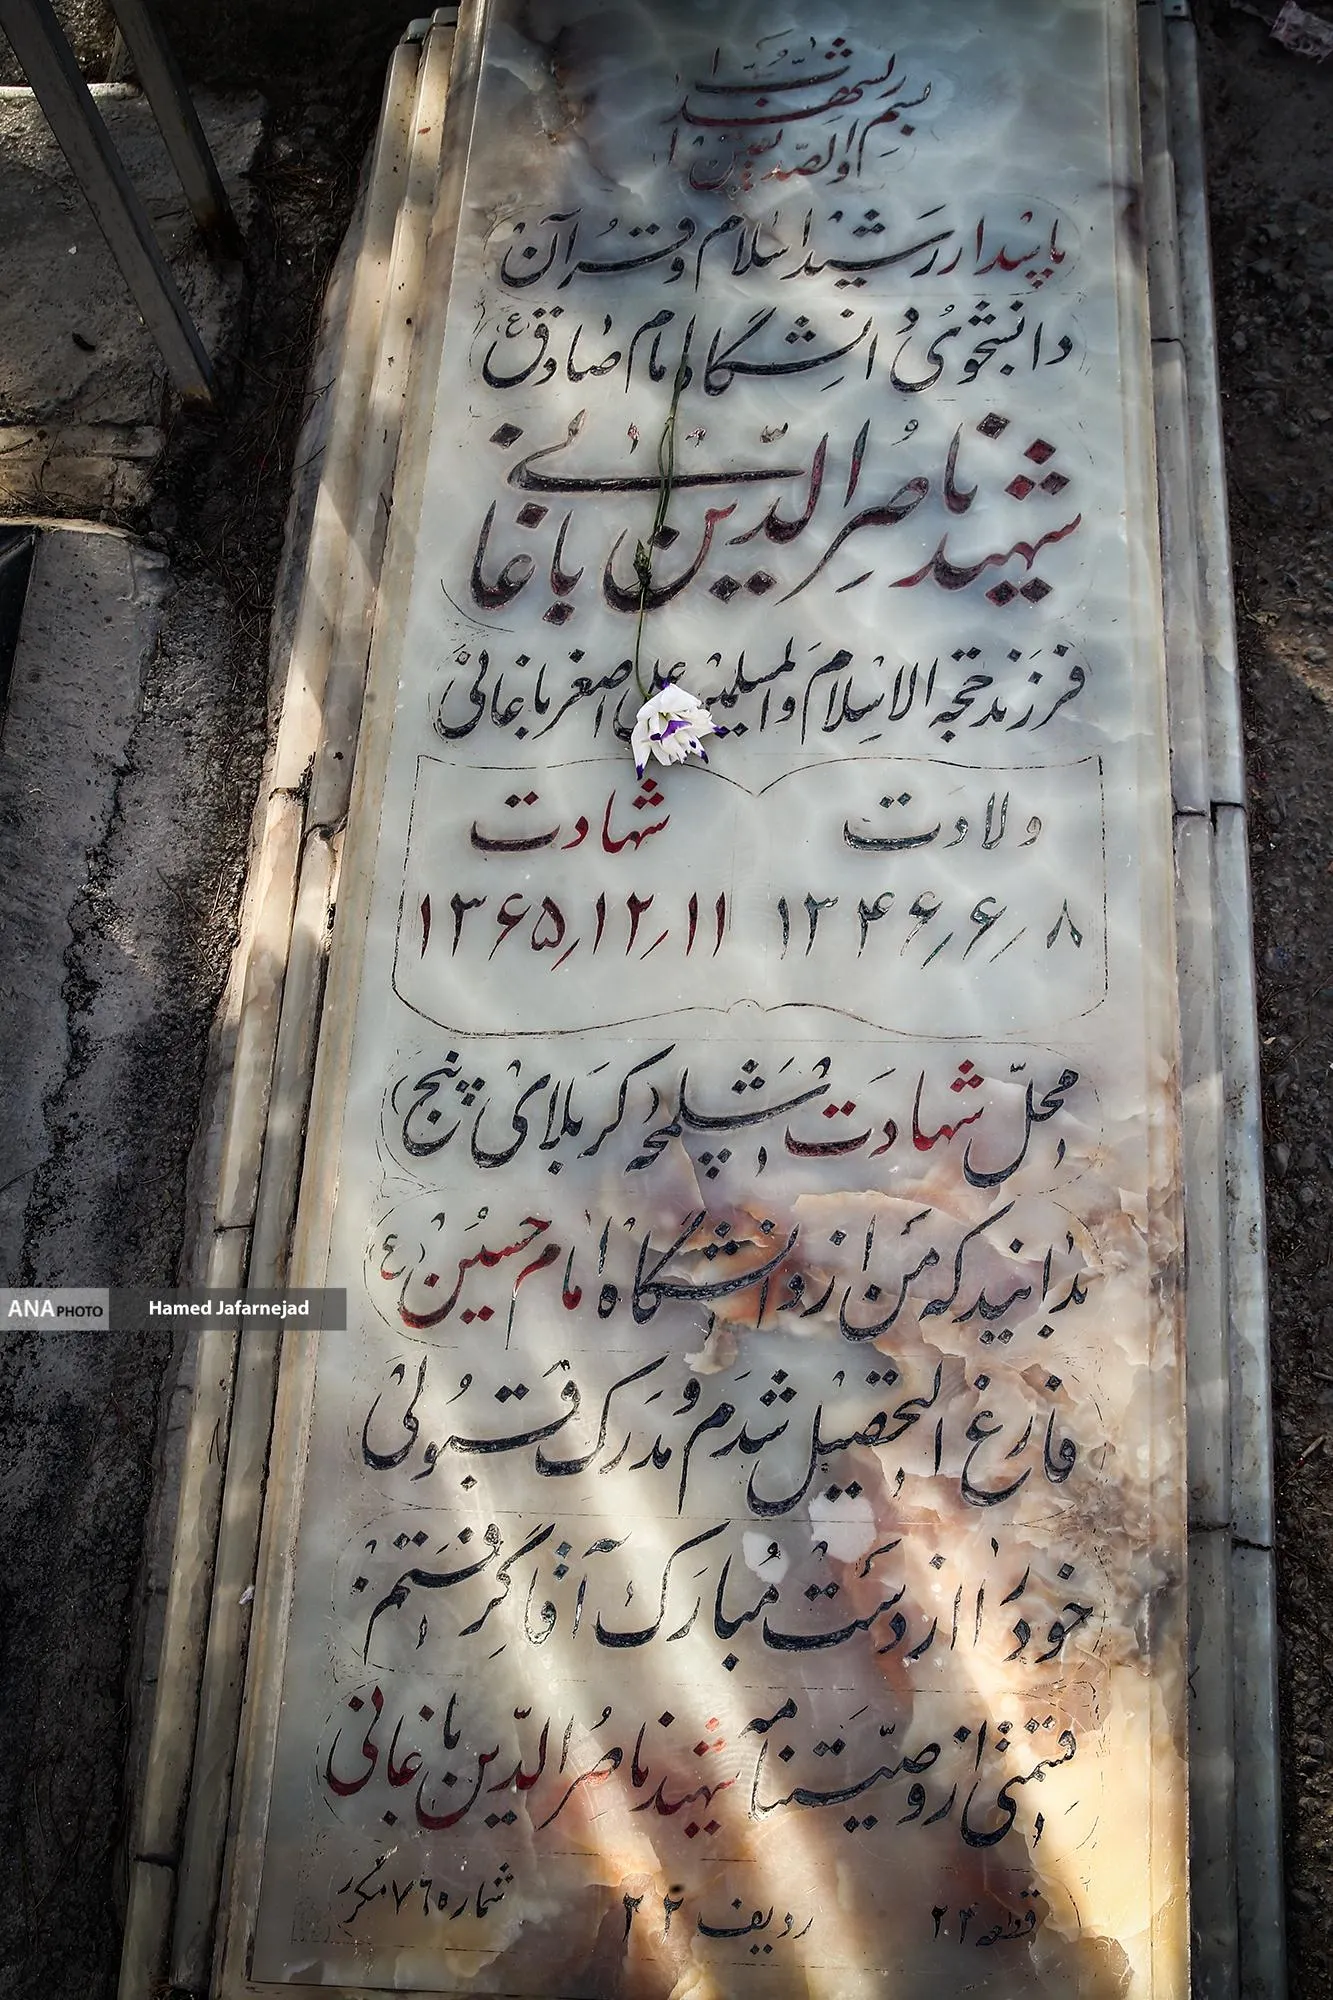 بسم رب الشهدا
و الصدیقین
پاسدار رشید اسلام و قرآن
دانشجوی دانشگاه امام صادق (ع)
شهید ناصرالدین باغانی
فرزند حجة الاسلام والمسلمین علی اصغر باغانی
ولادت
۸/۶/۱۳۴۶
شهادت
۱۱/۱۲/۱۳۶۵
محل شهادت شلمچه کربلای پنج
بدانید که من از دانشگاه امام حسین (ع)
فارغ التحصیل شدم و مدرک قبولی
خود را از دست مبارک آقا گرفتم
قسمتی از وصیتنامه شهید ناصرالدین باغانی
قطعه ۲۴ ردیف ۲۲ شماره ۷۶ مکرر
ANA PHOTO Hamed Jafarnejad